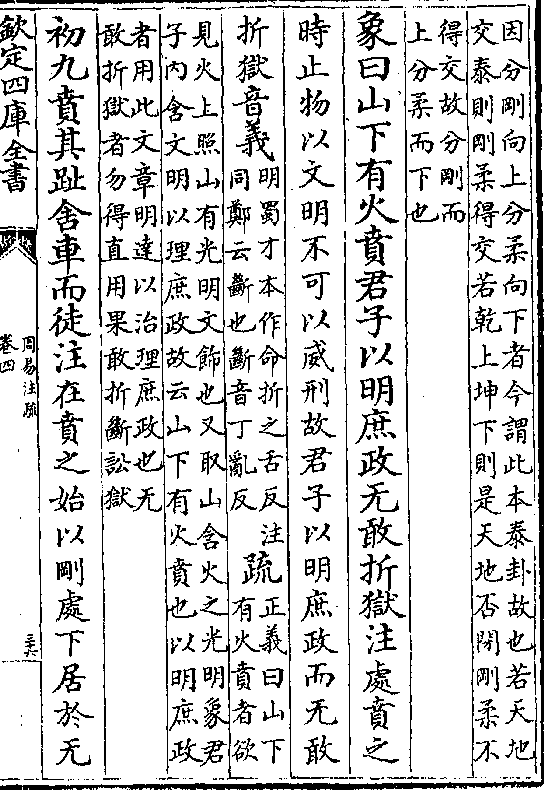 因分剛向上分柔向下者今謂此本泰卦故也若天地
交泰則剛柔得交若乾上坤下則是天地否閉剛柔不
得交故分剛而
上分柔而下也
象曰山下有火賁君子以明庶政无敢折獄注處賁之
時止物以文明不可以威刑故君子以明庶政而无敢
折獄音義明蜀才本作命折之舌反注
同鄭云斷也斷音丁亂反
疏正義曰山下
有火賁者欲
見火上照山有光明文飾也又取山含火之光明象君
子內含文明以理庶政故云山下有火賁也以明庶政
者用此文章明達以治理庶政也无
敢折獄者勿得直用果敢折斷訟獄
初九賁其趾舍車而徒注在賁之始以剛處下居於无
欽定四庫全書
周易注疏
卷四